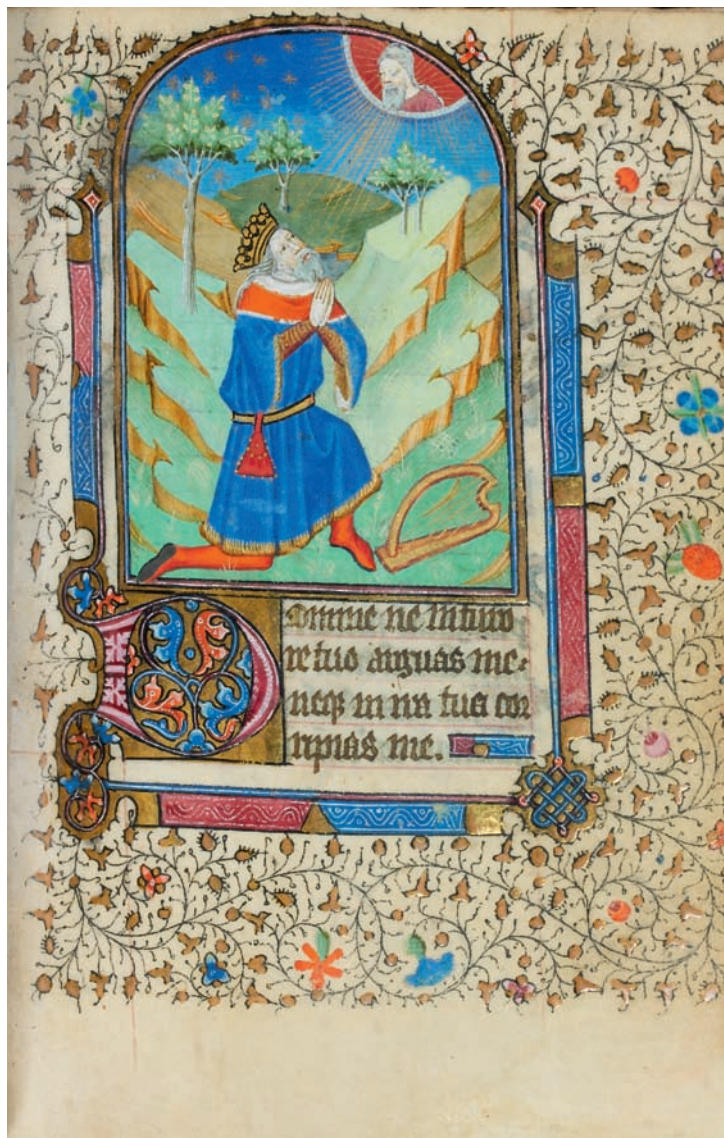 Domine ne in furo
re tuo arguas me:
neqz in ira tua cor
ripias me.